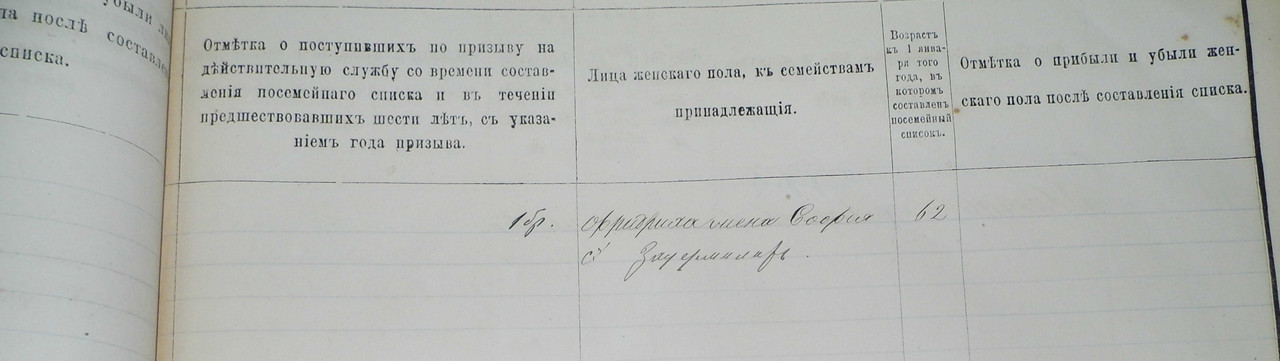 убыли ли
ла послѣ составле
списка.
Отмѣтка о поступившихъ по призыву на
дѣйствительную службу со времени состав-
ленія посемейнаго списка и въ теченіи
предшествовавшихъ шести лѣтъ, съ указа-
ніемъ года призыва.
Лица женскаго пола, къ семействамъ
принадлежащія.
Возрастъ
къ 1 янва-
ря того
года, въ
которомъ
составленъ
посемейный
списокъ.
Отмѣтка о прибыли и убыли жен-
скаго пола послѣ составленія списка.
1 бр.
Фридриха жена София
62